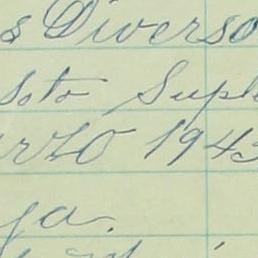 s Diverso
Soto Suple
rzo 1943
ga.